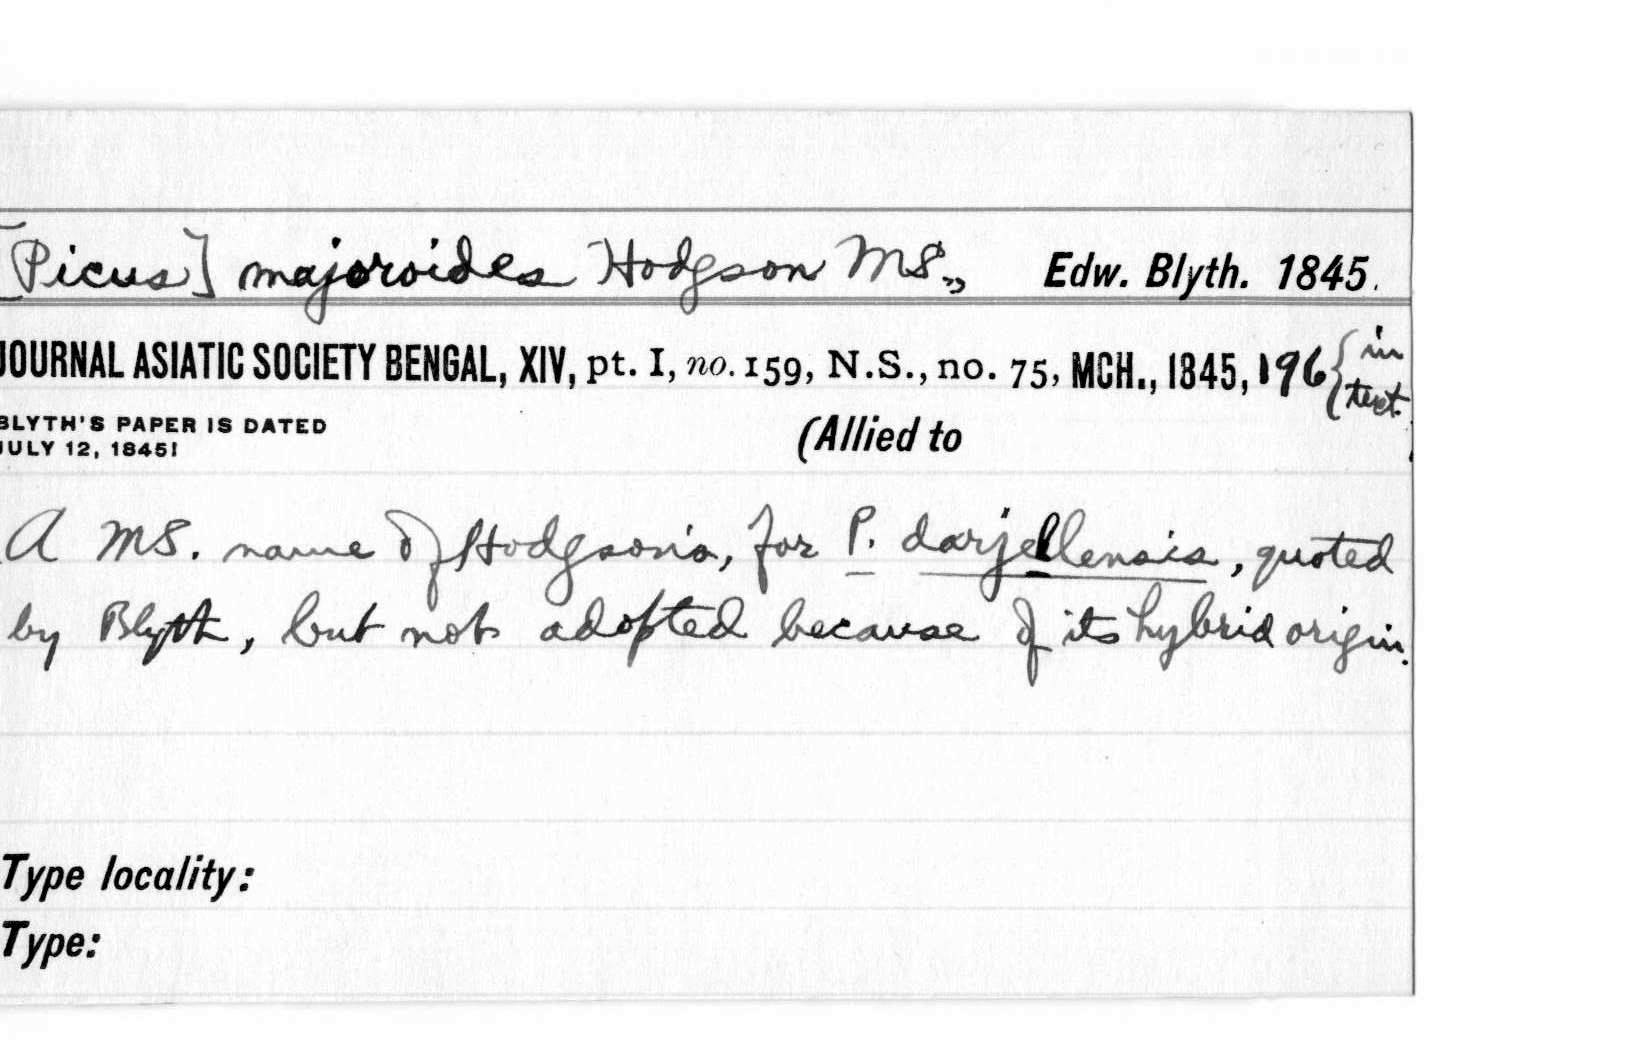 [Picus] majoroides Hodgson MS., Edw. Blyth. 1845.
JOURNAL ASIATIC SOCIETY BENGAL, XIV, pt. I, no. 159, N.S., no. 75, MCH., 1845, 196 { in text.
BLYTH'S PAPER IS DATED
JULY 12, 1845!
(Allied to )
A MS. name of Hodgson's, for P. darjellensis, quoted
by Blyth, but not adopted because of its hybrid origin.
Type locality:
Type: